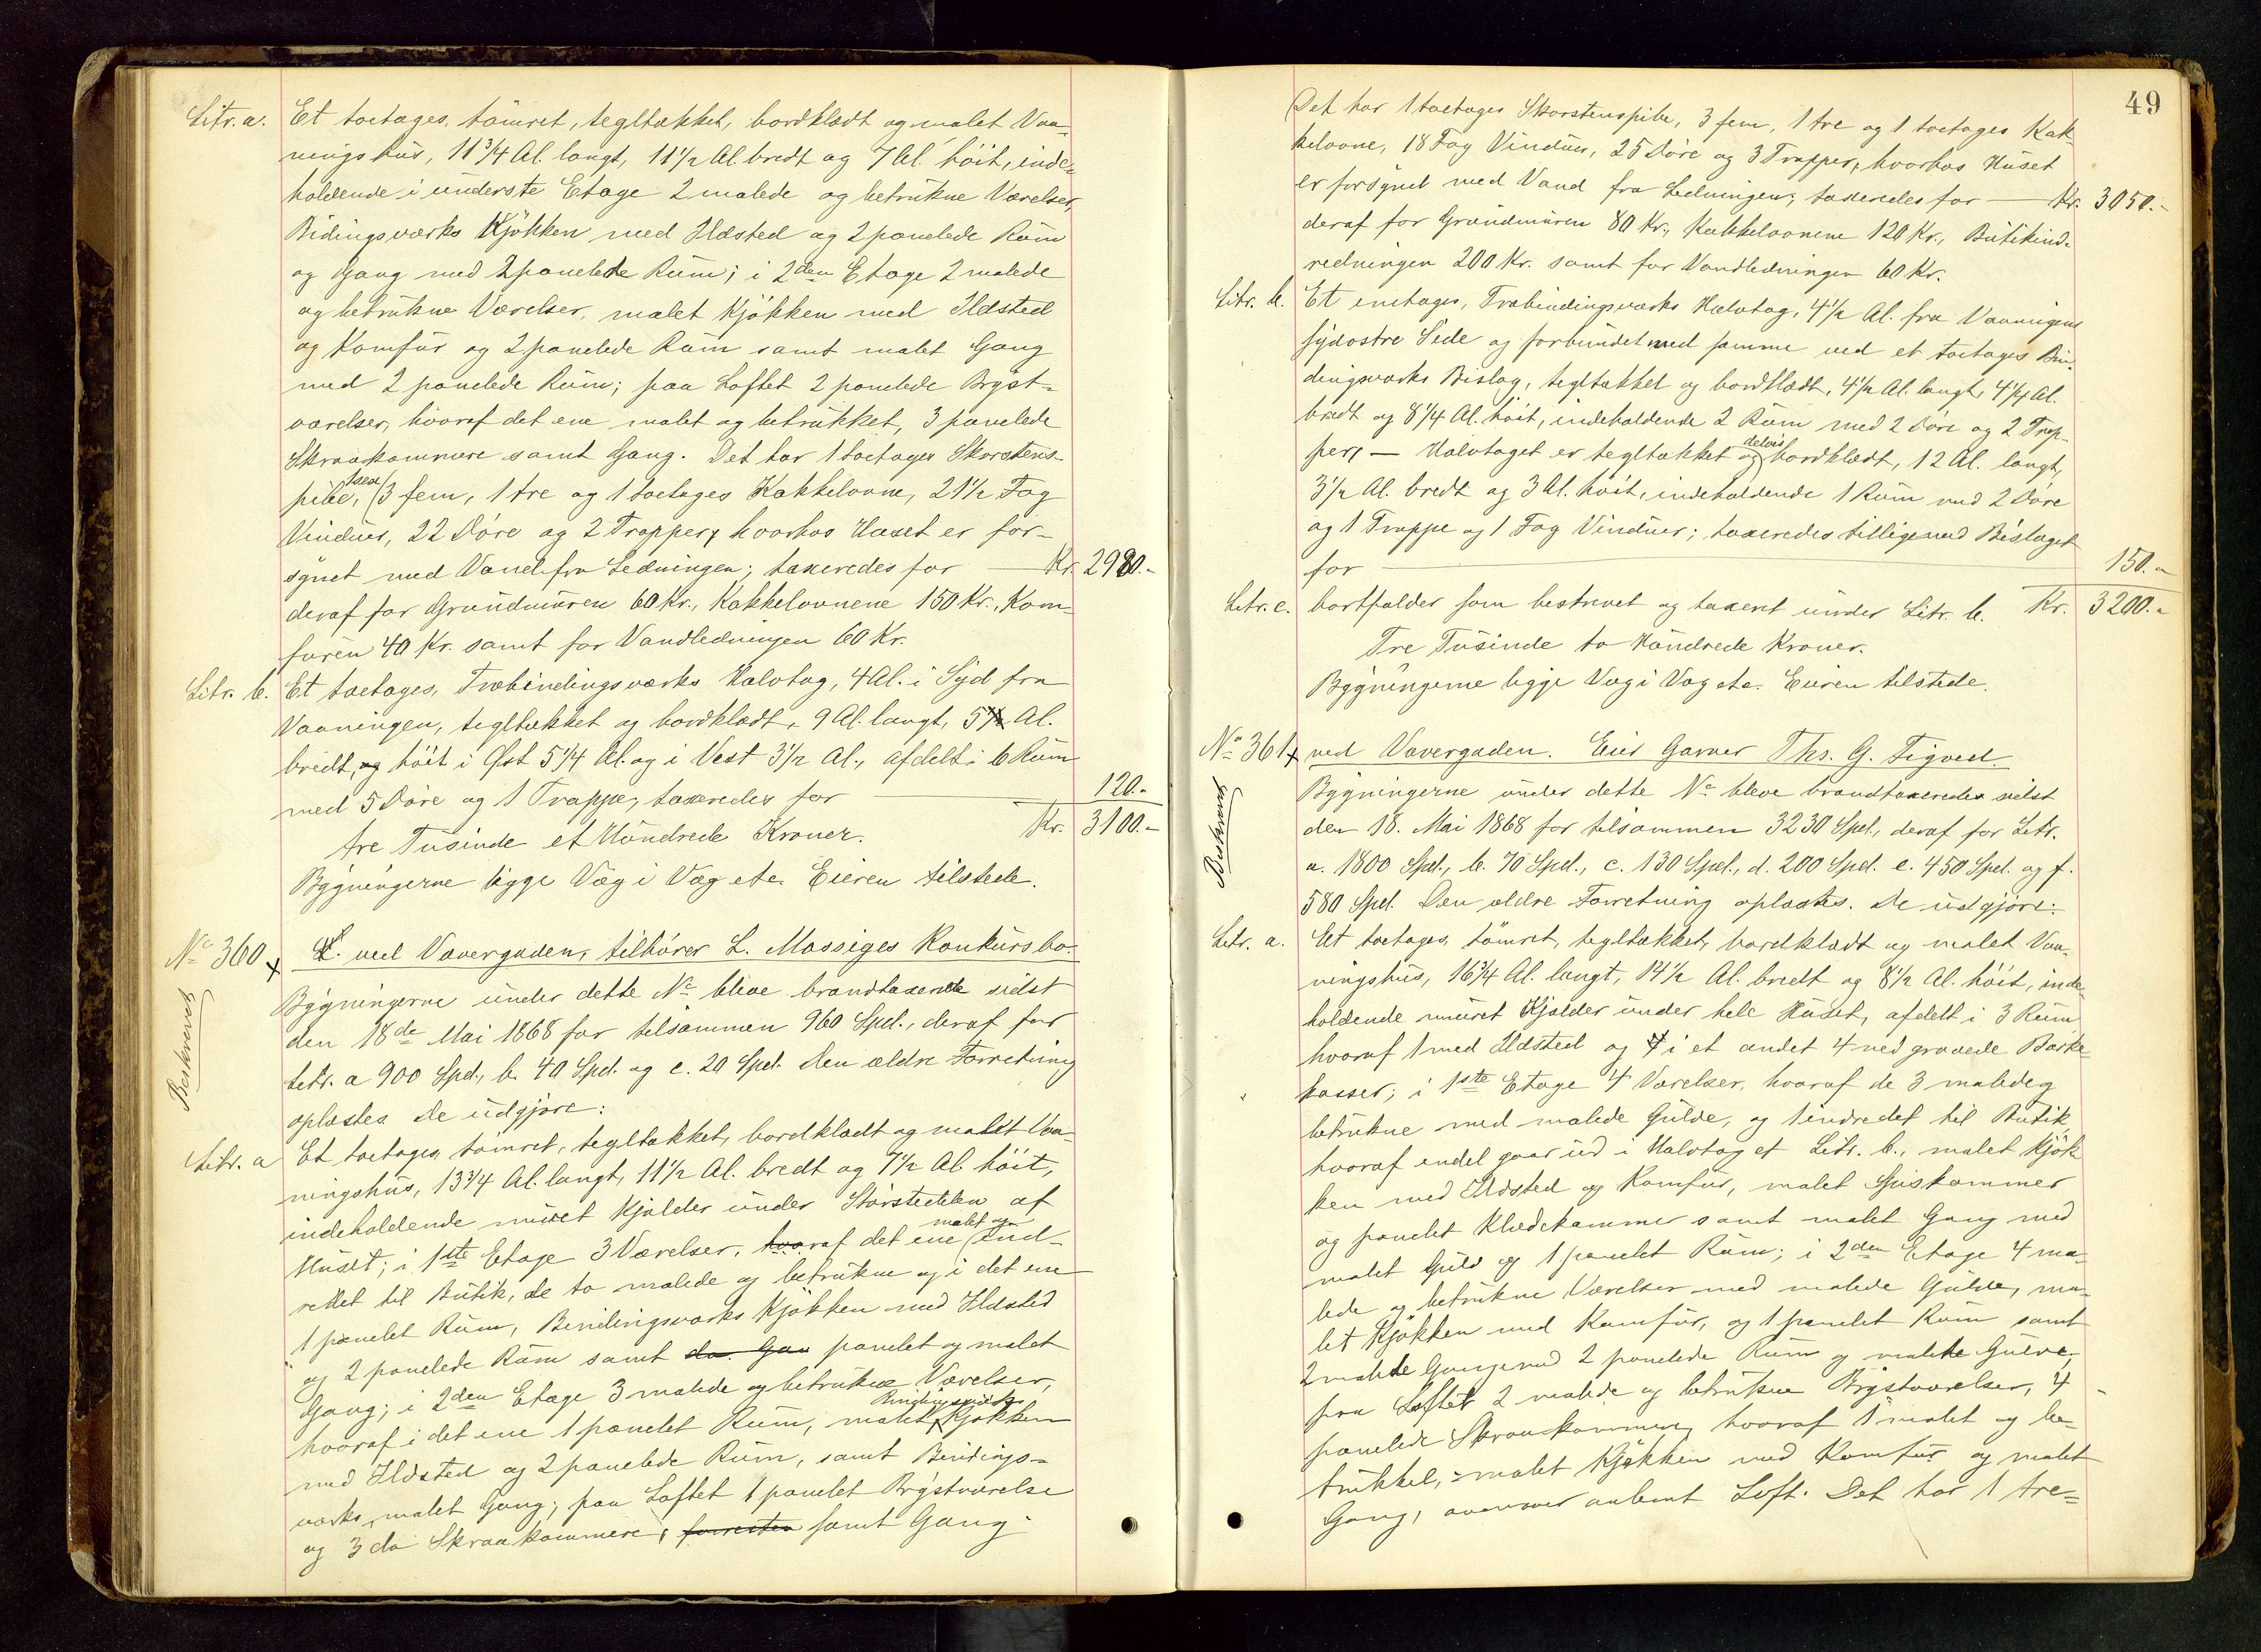 Litr. a. Et toetages, tömret, tegltækket, bordklædt og malet Vaa-
ningshus, 11 3/4 Al. langt, 11 1/2 Al. bredt og 7 Al. höit, inde-
holdende i underste Etage 2 malede og betrukne Værelser,
Bidingsværks Kjökken med Ildsted og 2 panelede Rum
og Gang med 2 panelede Rum; i 2den Etage 2 malede
og betrukne Værelser, malet Kjökken med Ildsted
og Komfur og 2 panelede Rum samt malet Gang
med 2 panelede Rum; paa Loftet 2 panelede Bryst-
værelser, hvoraf det ene malet og betrukket, 3 panelede
Skraakammere samt Gang. Det har 1 toetages Skorstens-
pibe, 3 fem, 1 tre og 1 toetages Kakkelovne, 21 1/2 Fag
Vinduer, 22 Döre og 2 Trapper, hvorhos Huset er for-
synet med Vand fra Ledningen; taxeredes for — Kr. 2980.-
deraf for Grundmuren 60 Kr., Kakkelovnene 150 Kr., Kom-
furen 40 Kr. samt for Vandledningen 60 Kr.
Litr. b. Et toetages, Træbindingsværks Halvtag, 4 Al. i Syd fra
Vaaningen, tegltækket og bordklædt, 9 Al. langt, 5 Al.
bredt, og höit i Öst 5 1/4 Al. og i Vest 3 1/2 Al., afdelt i 6 Rum
med 5 Döre og 1 Trappe, taxeredes for — 120.-
tre Tusinde et Hundrede Kroner. Kr. 3100.-
Bygningerne ligge Væg i Væg etc. Eieren tilstede.
No 360 L. ved Vævergaden, tilhörer L. Mossiges Konkursbo.
Beskrevet
Bygningerne under dette No bleve brandtaxerede sidst
den 18de Mai 1868 for tilsammen 960 Spd., deraf for
Litr. a 900 Spd., b. 40 Spd. og c. 20 Spd. Den ældre Forretning
oplæstes. De udgjöre:
Litr. a Et toetages, tömret, tegltækket, bordklædt og malet Vaa-
ningshus, 13 3/4 Al. langt, 11 1/2 Al. bredt og 7 1/2 Al. höit,
indeholdende muret Kjælder under Störstedelen af
Huset; i 1ste Etage 3 Værelser, hvoraf det ene malet og ind-
rettet til Butik, de to malede og betrukne og i det ene
1 panelet Rum, Bindingsværks Kjökken med Ildsted
og 2 panelede Rum samt do. Gan panelet og malet
Gang; i 2den Etage 3 malede og betrukne Værelser,
hvoraf i det ene 1 panelet Rum, malet Bindingsværks Kjökken
med Ildsted og 2 panelede Rum, samt Bindings-
værks malet Gang; paa Loftet 1 panelet Brystværelse
og 3 do Skraakammere, samt Gang.
49
Det har 1 toetages Skorstenspibe, 3 fem, 1 tre og 1 toetages Kak-
kelovne, 18 Fag Vinduer, 25 Döre og 3 Trapper, hvorhos Huset
er forsynet med Vand fra Ledningen; taxeredes for — Kr. 3050.-
deraf for Grundmuren 80 Kr., Kakkelovnene 120 Kr., Butikind-
redningen 200 Kr. samt for Vandledningen 60 Kr.
Litr. b. Et enetages, Træbindingsværks Halvtag, 4 1/2 Al. fra Vaaningens
sydostre Side og forbundet med samme ved et toetages Bin-
dingsværks Bislag, tegltækket og bordklædt, 4 1/2 Al. langt, 4 1/4 Al.
bredt og 8 1/4 Al. höit, indeholdende 2 Rum med 2 Döre og 2 Trap-
per, — Halvtaget er tegltækket og delvis bordklædt, 12 Al. langt,
3 1/2 Al. bredt og 3 Al. höit, indeholdende 1 Rum med 2 Döre
og 1 Trappe og 1 Fag Vinduer; taxeredes tilligemed Bislaget
for — 150.-
Litr. c. bortfalder som beskrevet og taxeret under Litr. b. Kr. 3200.-
Tre Tusinde to Hundrede Kroner.
Bygningerne ligge Væg i Væg etc. Eieren tilstede.
No 361 ved Vævergaden. Eier Garver Ths. G. Tigved.
Beskrevet
Bygningerne under dette No bleve brandtaxeredes sidst
den 18. Mai 1868 for tilsammen 3230 Spd., deraf for Litr.
a. 1800 Spd., b. 70 Spd., c. 130 Spd., d. 200 Spd. e. 450 Spd. og f.
580 Spd. Den ældre Forretning oplæstes. De udgjöre:
Litr. a. Et toetages, tömret, tegltækket, bordklædt og malet Vaa-
ningshus, 16 3/4 Al. langt, 14 1/2 Al. bredt og 8 1/2 Al. höit, inde-
holdende muret Kjælder under hele Huset, afdelt i 3 Rum
hvoraf 1 med Ildsted og i et andet 4 nedgravede Barke-
kasser; i 1ste Etage 4 Værelser, hvoraf de 3 malede og
betrukne med malede Gulve, og 1 indredet til Butik,
hvoraf endel gaar ud i Halvtaget Litr. b., malet Kjök-
ken med Ildsted og Komfur, malet Spiskammer
og panelet Klædekammer samt malet Gang med
malet Gulv og 1 panelet Rum; i 2den Etage 4 ma-
lede og betrukne Værelser med malede Gulve, ma-
let Kjökken med Komfur, og 1 panelet Rum samt
2 malede Gange med 2 panelede Rum og malede Gulve,
paa Loftet 2 malede og betrukne Brystværelser, 4
panelede Skraakammere, hvoraf 1 malet og be-
trukket, malet Kjökken med Komfur og malet
Gang, ovenover aabent Loft. Det har 1 tre-